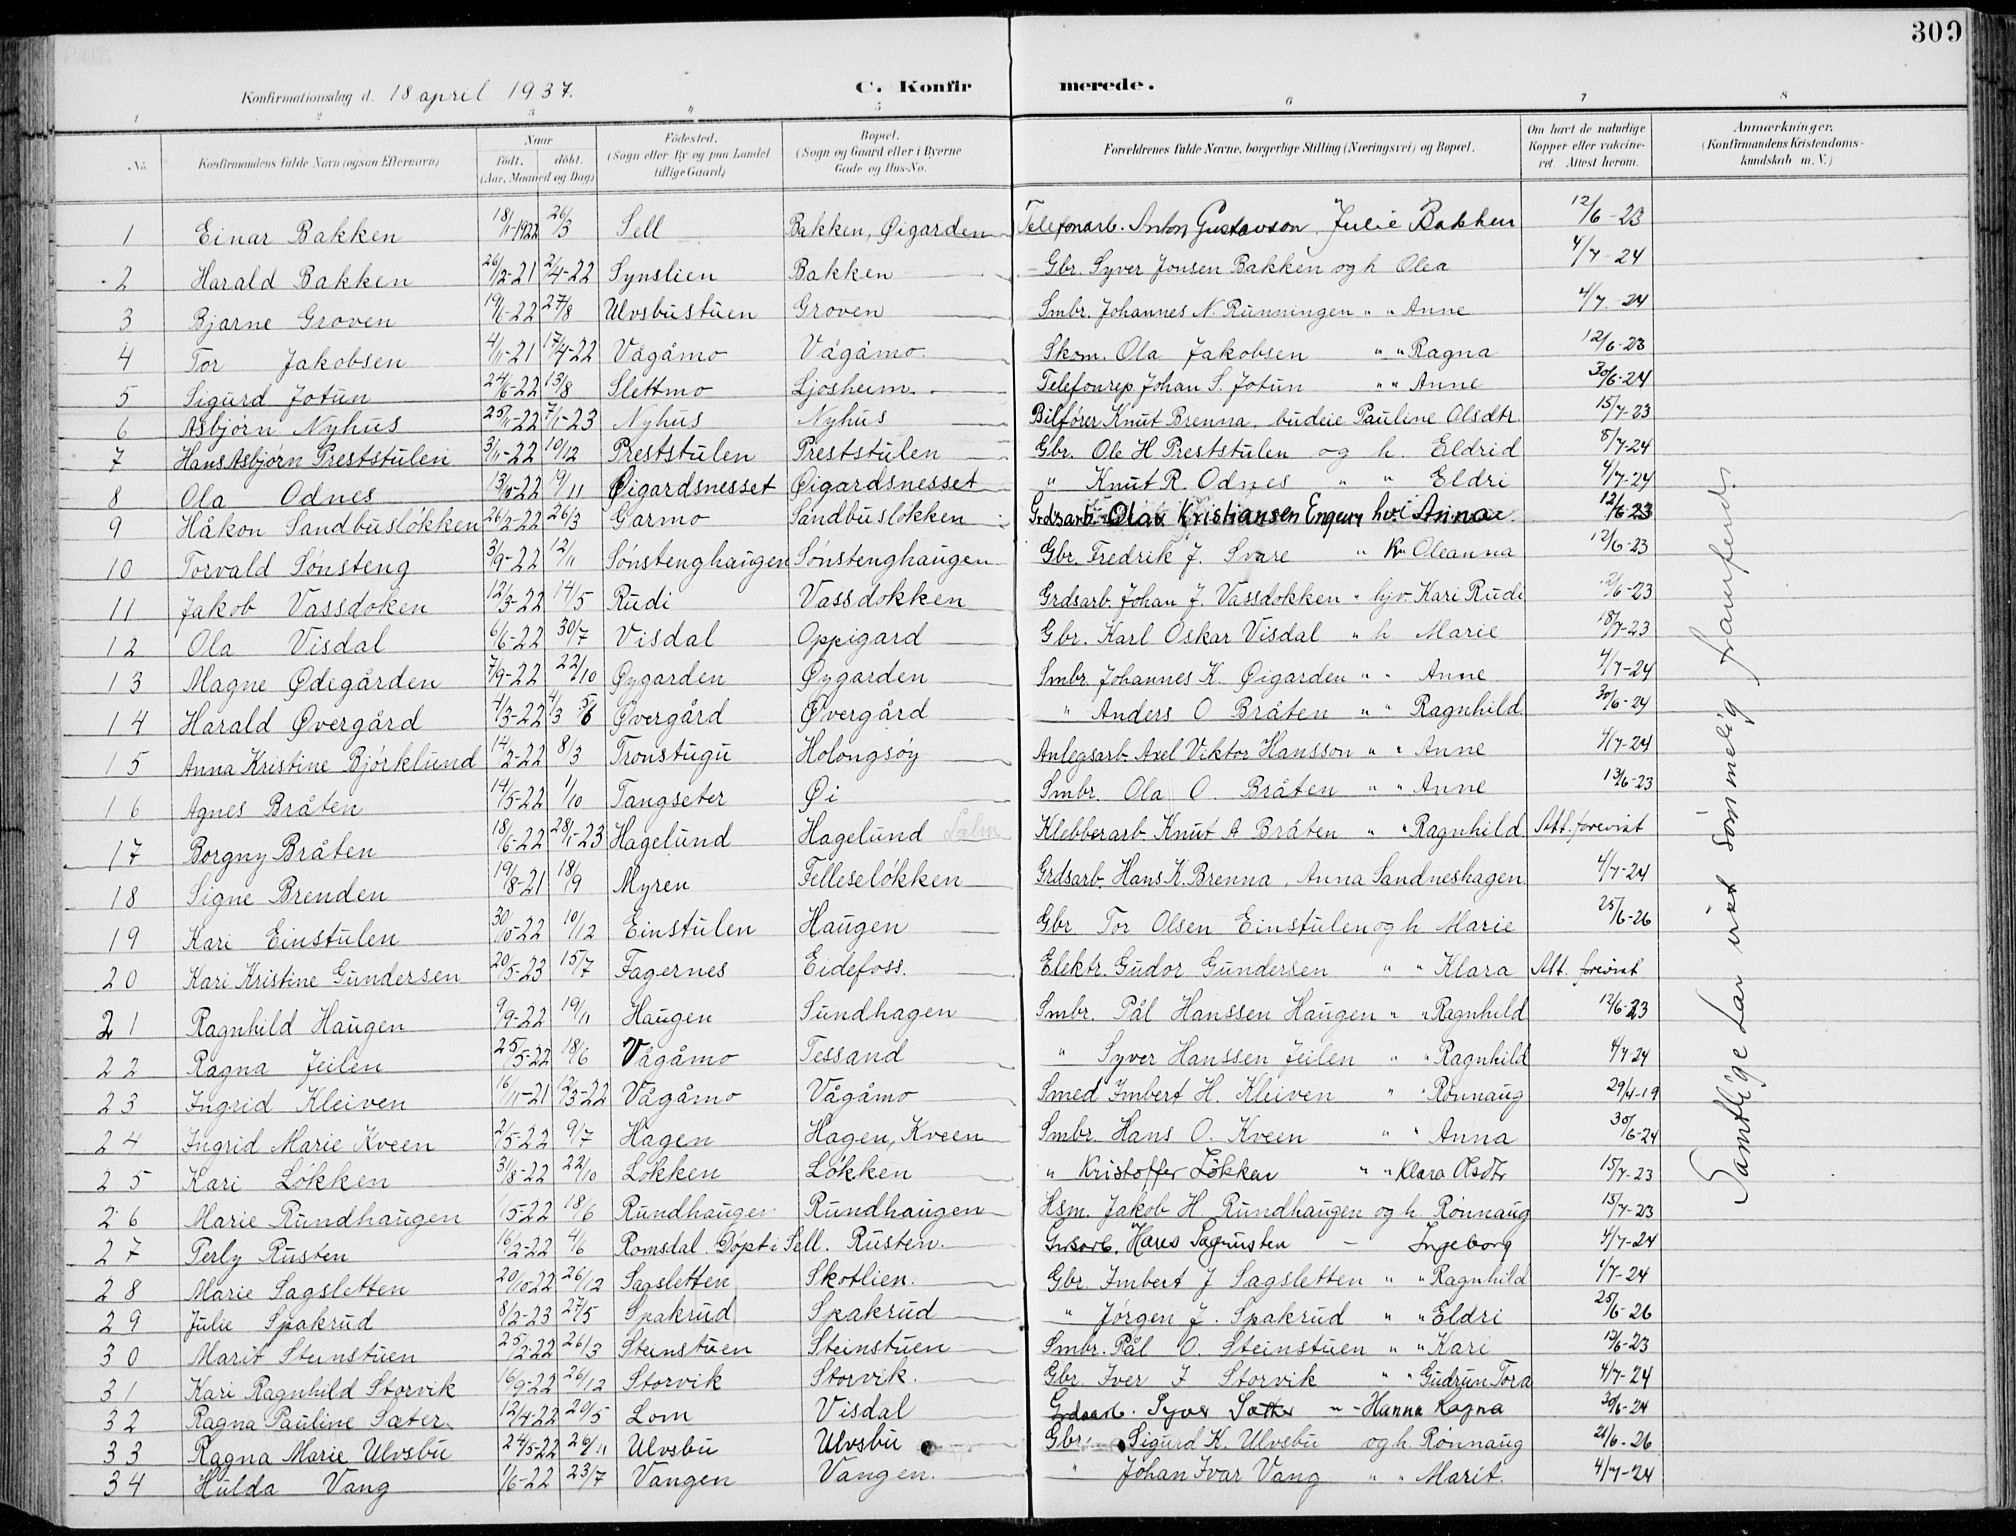 309
Konfirmationsdag d. 18 april 1937. C. Konfirmerede.
1 2 3 4 5 6 7 8
No. Konfirmandens fulde Navn (ogsaa Efternavn) Naar født. døbt. (Aar, Maaned og Dag) Fødested. (Sogn eller By og paa Landet tillige Gaard) Bopæl. (Sogn og Gaard eller i Byerne Gade og Hus-No. Forældrenes fulde Navne, borgerlige Stilling (Næringsvei) og Bopæl. Om havt de naturlige Kopper eller vakcineret. Attest herom. Anmærkninger. (Konfirmandens Kristendomskundskab m. V.)
1 Einar Bakken 18/1-1922 26/3 Sell Bakken, Øigarden Telefonarb. Anton Gustavson, Julie Bakken 12/6-23
2 Harald Bakken 26/12-21 2/4-22 Synslien Bakken Gbr. Syver Jonsen Bakken og h Olea 4/7-24
3 Bjarne Groven 19/6-22 27/8 Ulvsbustuen Groven Smbr. Johannes N. Runningen " " Anne 4/7-24
4 Tor Jakobsen 4/11-21 17/4-22 Vågåmo Vågåmo Skom. Ola Jakobsen " " Ragna 12/6-23
5 Sigurd Jotun 24/6-22 13/8 Slettmo Ljosheim Telefonrep. Johan S. Jotun " " Anne 30/6-24
6 Asbjørn Nyhus 25/11-22 7/1-23 Nyhus Nyhus Bilfører Knut Brenna, budeie Pauline Olsdtr. 15/7-23
7 Hans Asbjørn Preststulen 3/11-22 10/12 Preststulen Preststulen Gbr. Ole H Preststulen og h. Eldrid 8/7-24
8 Ola Odnes 13/10-22 19/11 Øigardsnesset Øigardsnesset " Knut R. Odnes " " Eldri 4/7-24
9 Håkon Sandbusløkken 26/2-22 26/3 Garmo Sandbusløkken Grdsarb. Olav Kristiansen Engen, hvi Anna 12/6-23
10 Torvald Sønsteng 3/9-22 12/11 Sønstenghaugen Sønstenghaugen Gbr. Fredrik J. Svare " K Oleanna 12/6-23
11 Jakob Vassdoken 12/3-22 14/5 Rudi Vassdokken Grdsarb. Johan J. Vassdokken " hjv. Kari Rudi 12/6-23
12 Ola Visdal 6/6-22 30/7 Visdal Oppigard Gbr. Karl Oskar Visdal " h Marie 18/7-23
13 Magne Ødegården 7/9-22 22/10 Øygarden Øygarden Smbr. Johannes K. Øigarden " " Anne 4/7-24
14 Harald Øvergård 4/3-22 5/6 Øvergård Øvergård " Anders O Bråten " " Ragnhild 30/6-24
15 Anna Kristine Bjørklund 14/2-22 8/3 Tronstugu Holongsøy Anlegsarb. Axel Viktor Hansson " " Anne 4/7-24
16 Agnes Bråten 14/5-22 1/10 Tangseter Øi Smbr. Ola O. Bråten " " Anne 13/6-23
17 Borgny Bråten 18/6-22 28/1-23 Hagelund Hagelund Lalm Klebberarb. Knut A Bråten " " Ragnhild Att. forevist
18 Signe Brenden 19/8-21 18/9 Myren Felleseløkken Grdsarb. Hans K. Brenna, Anna Sandneshagen 4/7-24
19 Kari Einstulen 30/10-22 10/12 Einstulen Haugen Gbr Tor Olsen Einstulen og h Marie 25/6-26
20 Kari Kristine Gundersen 20/5-23 15/7 Fagernes Eidefoss. Elektr. Gudor Gundersen " " Klara Att. forevist
21 Ragnhild Haugen 9/9-22 19/11 Haugen Sundhagen Smbr. Pål Hanssen Haugen " " Ragnhild 12/6-23
22 Ragna Jeilen 25/5-22 18/6 Vågåmo Tessand " Syver Hanssen Jeilen " " Ragnhild 4/7 24
23 Ingrid Kleiven 16/11-21 12/3-22 Vågåmo Vågåmo Smed Imbert H. Kleiven " " Rønnaug 29/4-19
24 Ingrid Marie Kveen 2/5-22 9/7 Hagen Hagen, Kveen Smbr. Hans O. Kveen " " Anna 30/6-24
25 Kari Løkken 31/8-22 22/10 Løkken Løkken " Kristoffer Løkken " " Klara Olsdtr 15/7-23
26 Marie Rundhaugen 1/5-22 18/6 Rundhaugen Rundhaugen Hsm. Jakob H Rundhaugen og h. Rønnaug 15/7-23
27 Perly Rusten 16/2-22 4/6 Romsdal. Døpt i Sell. Rusten. Grdsarb. Hans Rusten - Ingeborg 4/7-24
28 Marie Sagsletten 20/10-22 26/12 Sagsletten Skotlien. Gbr Imbert J Sagsletten " " Ragnhild 4/7-24
29 Julie Spakrud 8/2-23 27/5 Spakrud Spakrud " Jørgen J. Spakrud " " Eldri 25/6-26
30 Marit Steinstuen 25/2-22 26/3 Steinstuen Steinstuen Smbr. Pål O. Steinstuen " " Kari 12/6-23
31 Kari Ragnhild Storvik 16/9-22 26/12 Storvik Storvik. Gbr. Iver I Storvik " " Gudrun Tora 4/7-24
32 Ragna Pauline Sæter 12/4-22 20/5 Lom Visdal Grdsarb. Syver Sæther " - Hanna Ragna 30/6-24
33 Ragna Marie Ulvsbu 24/5-22 26/11 Ulvsbu Ulvsbu Gbr. Sigurd K. Ulvsbu og h. Rønnaug 21/6-26
34 Hulda Vang 1/6-22 23/7 Vangen Vangen. " Johan Ivar Vang " " Marit. 4/7-24
Samtlige har vist sømmelig framferd.